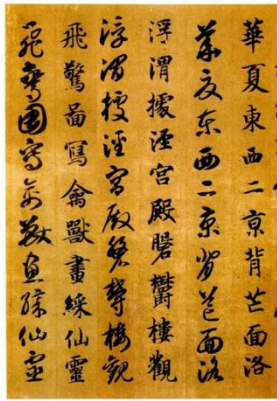 華夏東西二亰背芒面洛
華夏東西二京背芒面洛
浮渭據涇宮殿磐鬱樓觀
浮渭據涇宮殿磐鬱樓觀
飛驚啚寫禽獸畫綵仙靈
飛驚圖寫禽獸畫綵仙靈